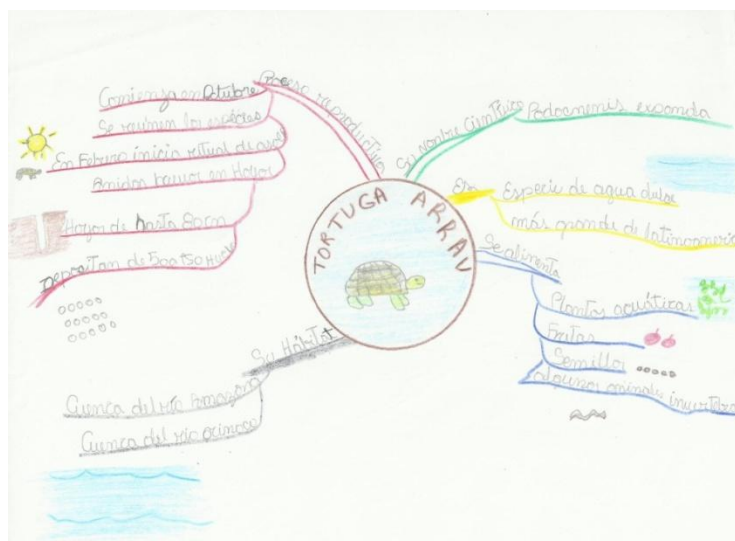 TORTUGA ARRAU
Proceso reproductivo
Comienza en Octubre
Se reunen las especies
En Febrero inicia ritual de
Anidan
en Hoyos
Hoyos de hasta 80cm
Depositan de 50 a 150
Su nombre Científico
Podocnemis expansa
Es
Especie de agua dulce
más grande de latinoameric
Se alimenta
Plantas acuáticas
Frutas
Semillas
algunos animales invertebra
Su Hábitat
Cuenca del río Amazona
Cuenca del río orinoco